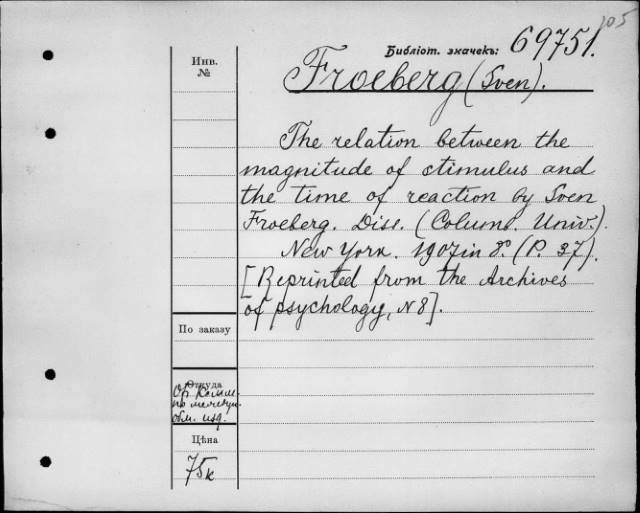 105
Библіот. значекъ: 69751.
Инв.
№
Froeberg (Sven).
The relation between the
magnitude of stimulus and
the time of reaction by Sven
Froeberg. Diss. (Columb. Univ.).
New York. 1907 in 8°. (P. 37).
[Reprinted from the Archives
of psychology, N 8].
По заказу
Откуда
От Комм.
по междун.
обм. изд.
Цѣна
75к